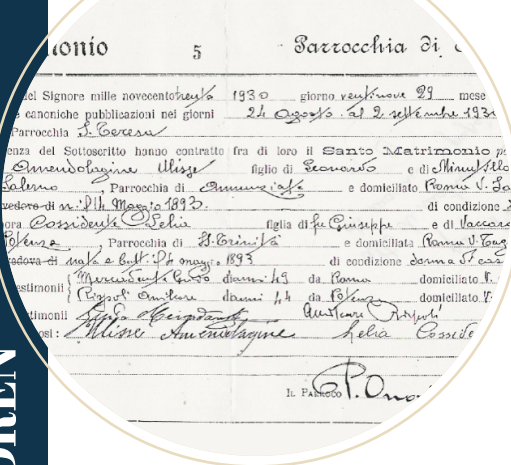 monio 5 Parrocchia di
del Signore mille novecento trenta 1930 giorno ventinove 29 mese
canoniche pubblicazioni nei giorni 24 Agosto al 2 settembre 193
Parrocchia S. Teresa
enza del Sottoscritto hanno contratto fra di loro il Santo Matrimonio
Amendolagine Ulisse figlio di Leonardo e di
Salerno, Parrocchia di Annunziata e domiciliato Roma V.
vedovo di n. il 14 Maggio 1893. di condizione
ora Cossidente Lelia figlia di fu Giuseppe e di Vaccaro
Potenza, Parrocchia di S. Trinità e domiciliata Roma V.
vedova di nata e batt. 1893 di condizione donna di casa
estimonii Guido d'anni 49 da Roma domiciliato V.
Rispoli d'anni 44 da Potenza domiciliato V.
stimonii Guido Rispoli
osi: Ulisse Amendolagine Lelia Cosside
Il Parroco P.
OREN